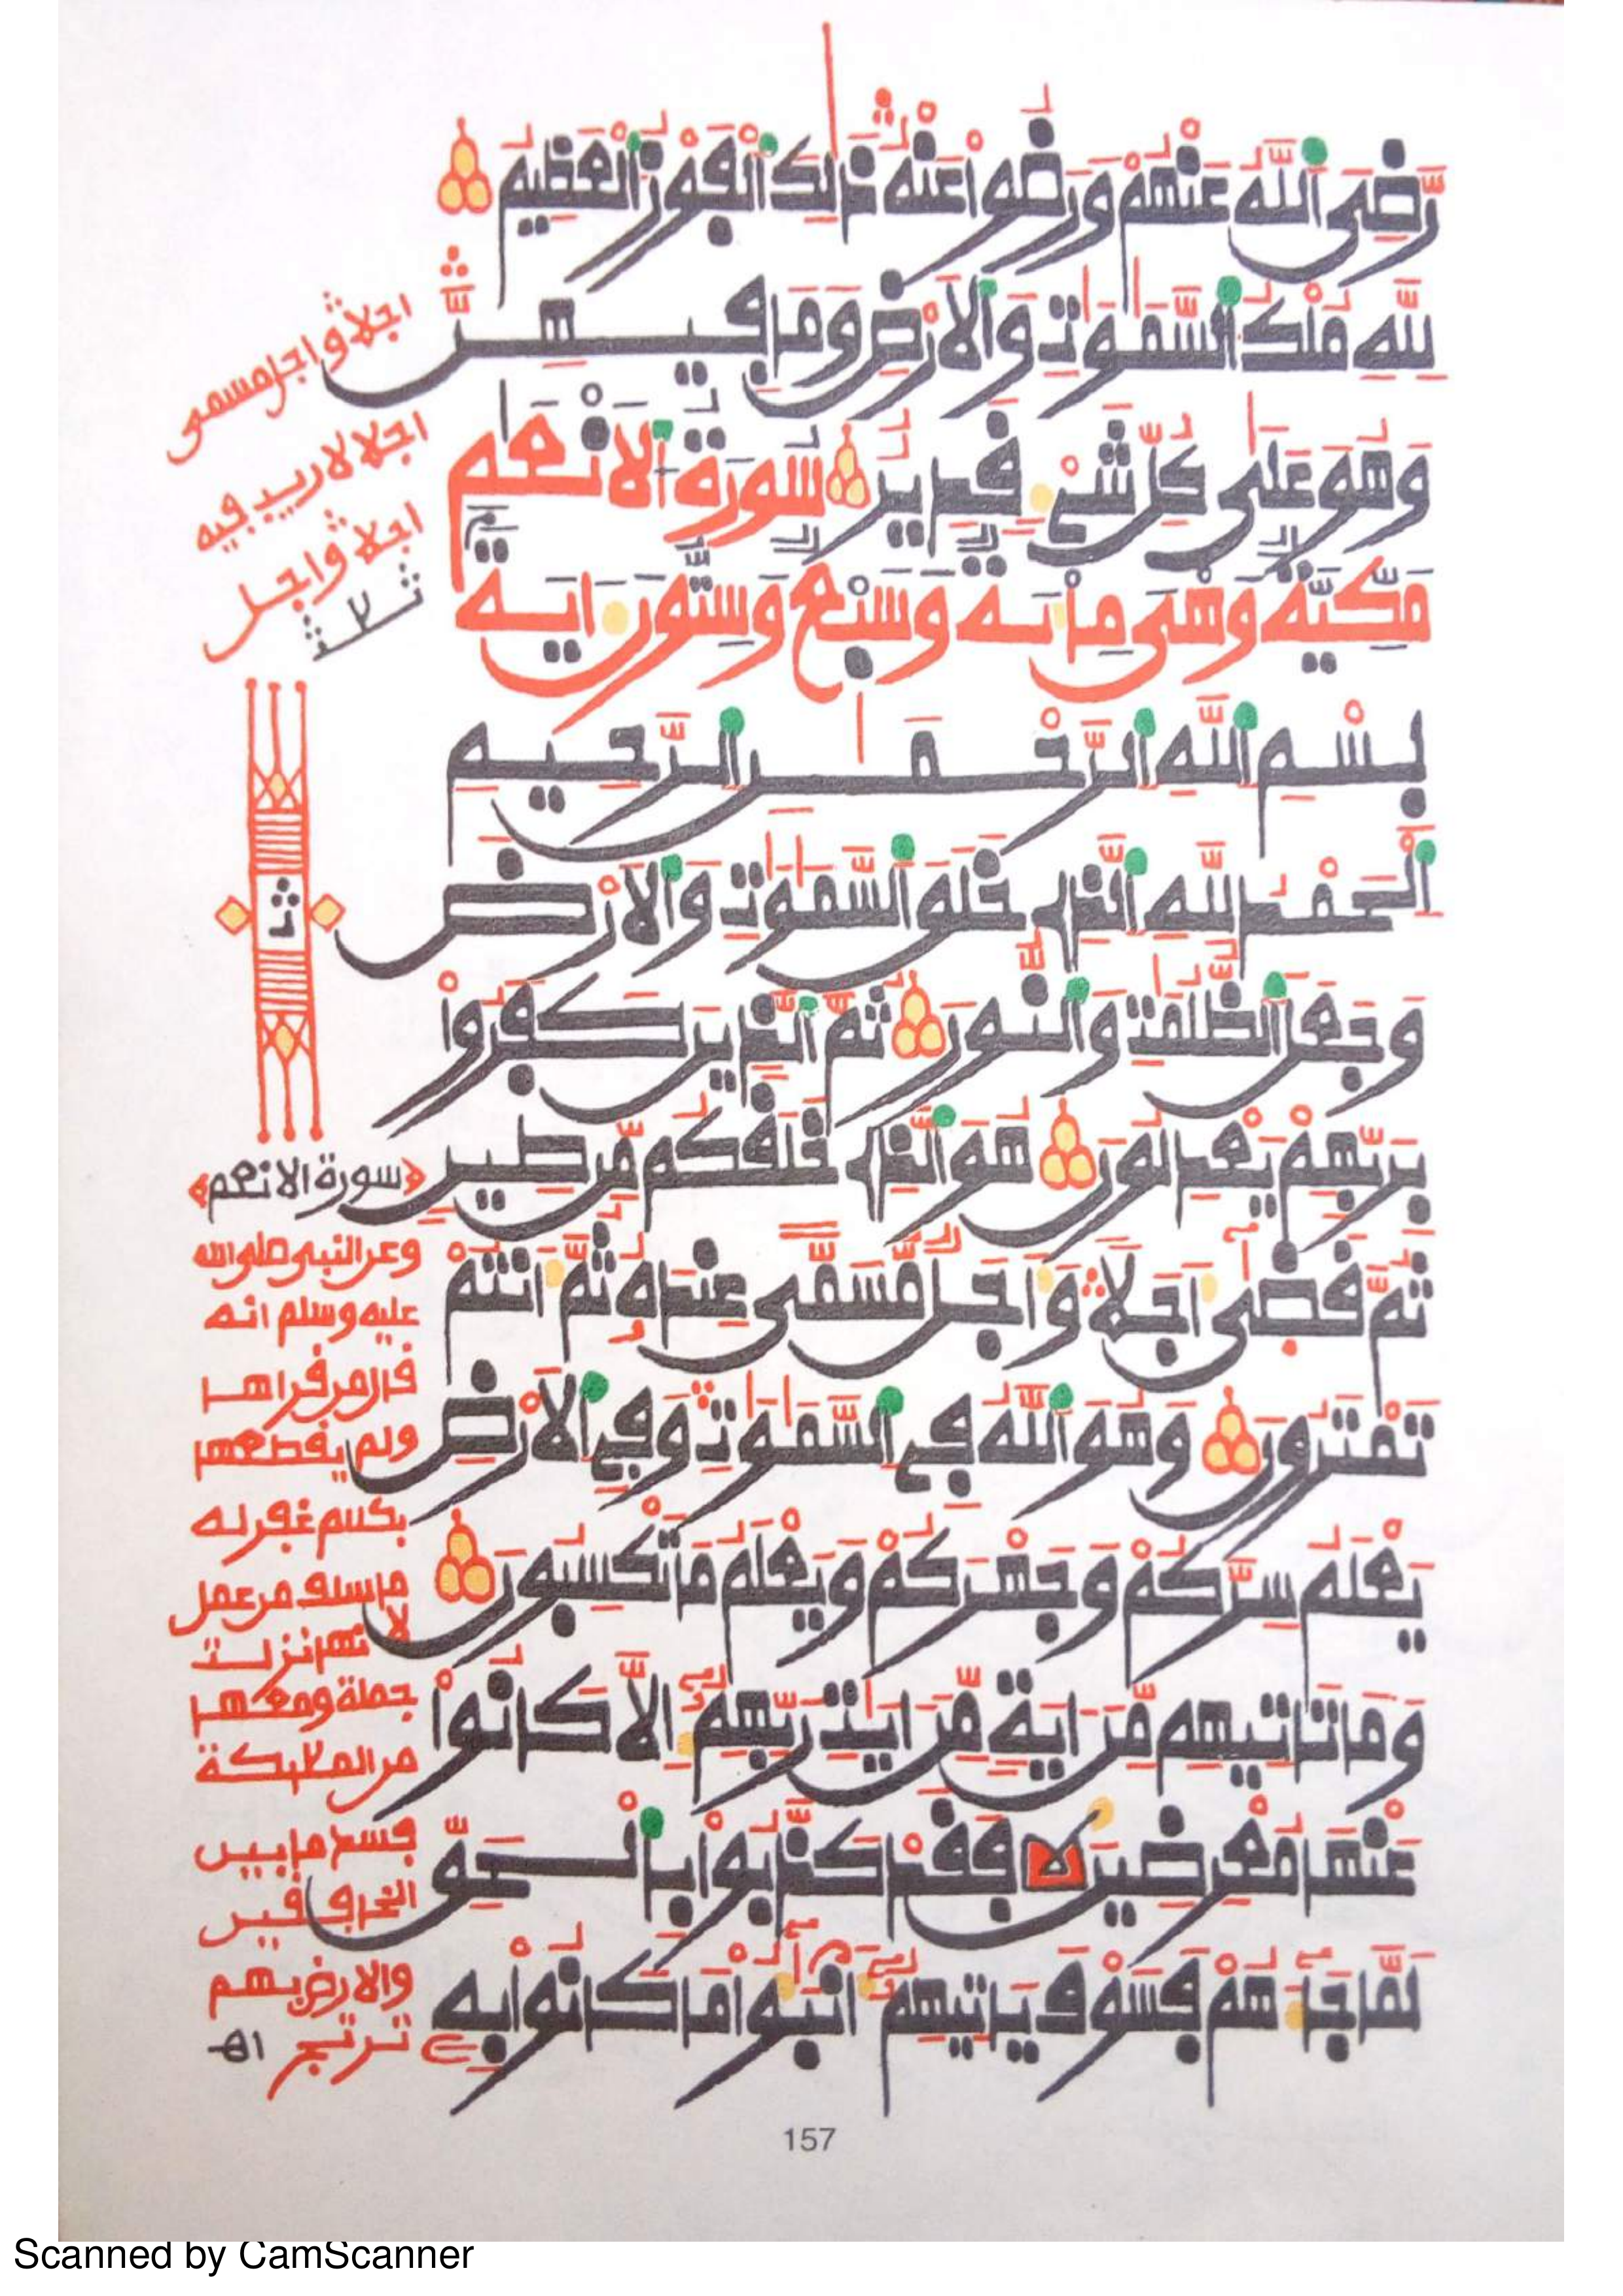 رَّضِيَ ٱللَّهُ عَنْهُمْ وَرَضُواْ عَنْهُ ذَٰلِكَ ٱلْفَوْزُ ٱلْعَظِيمُ
لِلَّهِ مُلْكُ ٱلسَّمَٰوَٰتِ وَٱلَارْضِ وَمَا فِيهِنَّ
وَهُوَ عَلَىٰ كُلِّ شَيْءٖ قَدِيرٌ سُورَةُ ٱلَانْعَٰمِ
مَكِّيَّةٌ وَهْيَ مِاْئَةٌ وَسَبْعٌ وَسِتُّونَ ءَايَةً
بِسْمِ ٱللَّهِ ٱلرَّحْمَٰنِ ٱلرَّحِيمِ
ٱلْحَمْدُ لِلَّهِ ٱلَّذِے خَلَقَ ٱلسَّمَٰوَٰتِ وَٱلَارْضَ
وَجَعَلَ ٱلظُّلُمَٰتِ وَٱلنُّورَ ثُمَّ ٱلَّذِينَ كَفَرُواْ
بِرَبِّهِمْ يَعْدِلُونَ هُوَ ٱلَّذِے خَلَقَكُم مِّن طِينٖ
ثُمَّ قَضَىٰ أَجَلٗا وَأَجَلٞ مُّسَمًّى عِندَهُۥ ثُمَّ أَنتُمْ
تَمْتَرُونَ وَهُوَ ٱللَّهُ فِے ٱلسَّمَٰوَٰتِ وَفِے ٱلَارْضِ
يَعْلَمُ سِرَّكُمْ وَجَهْرَكُمْ وَيَعْلَمُ مَا تَكْسِبُونَ
وَمَا تَاتِيهِم مِّنَ ايَةٖ مِّنَ ايَٰتِ رَبِّهِمُۥٓ إِلَّا كَانُواْ
عَنْهَا مُعْرِضِينَ فَقَدْ كَذَّبُواْ بِٱلْحَقِّ
لَمَّا جَآءَهُمْ فَسَوْفَ يَاتِيهِمُۥٓ أَنۢبَٰٓؤُاْ مَا كَانُواْ بِهِۦ
اجلا واجل مسمى
اجلا لا ريب فيه
اجلا واجل
ث
سورة الانعٰم
وعن النبي صلى الله
عليه وسلم انه
قال من قراها
ولم يقطعها
بكلام غفر له
ما سلف من عمل
لانها نزلت
جملة ومعها
من الملائكة
فسد ما بين
الخافقين
والارض بهم
ترتج اه
157
Scanned by CamScanner